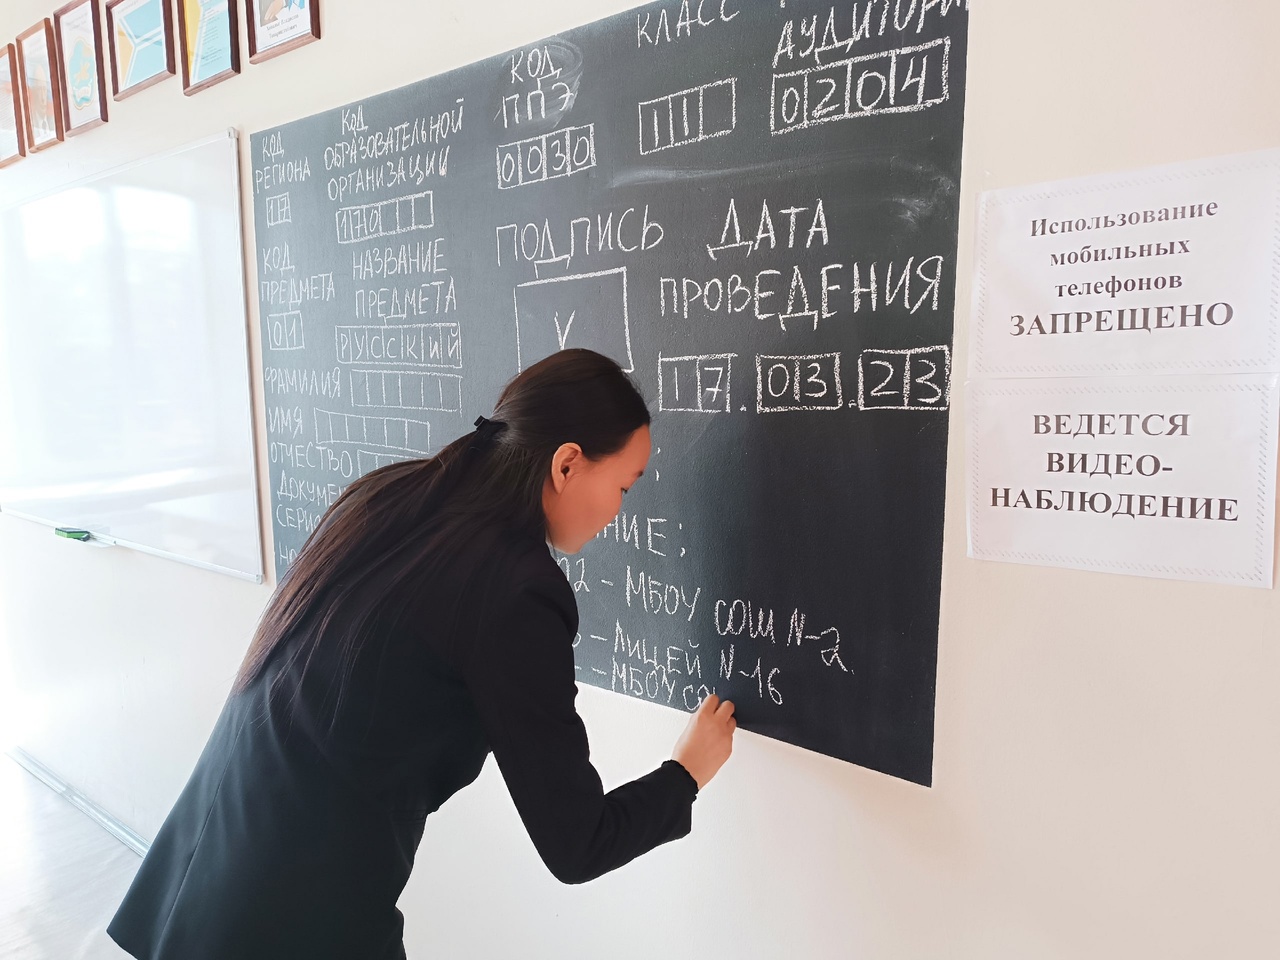 КОД
РЕГИОНА
17
КОД
ОБРАЗОВАТЕЛЬНОЙ
ОРГАНИЗАЦИИ
170
КОД
ППЭ
0030
КЛАСС
11
АУДИТОРИ
0204
КОД
ПРЕДМЕТА
01
НАЗВАНИЕ
ПРЕДМЕТА
РУССКИЙ
ПОДПИСЬ
ДАТА
ПРОВЕДЕНИЯ
17.03.23
ФАМИЛИЯ
ИМЯ
ОТЧЕСТВО
ДОКУМЕН
СЕРИ
НО
;
НИЕ;
02 - МБОУ СОШ N-2
- ЛИЦЕЙ N-16
- МБОУ СО
Использование
мобильных
телефонов
ЗАПРЕЩЕНО
ВЕДЕТСЯ
ВИДЕО-
НАБЛЮДЕНИЕ